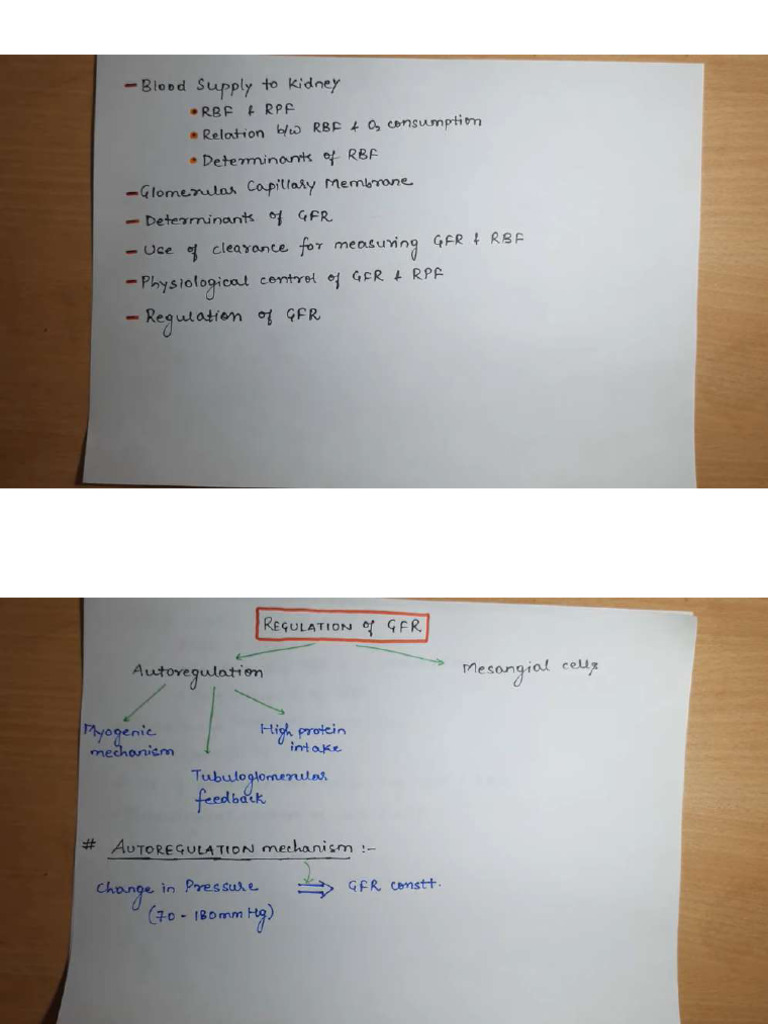 - Blood Supply to Kidney
• RBF & RPF
• Relation b/w RBF & O₂ consumption
• Determinants of RBF
- Glomerular Capillary Membrane
- Determinants of GFR
- Use of clearance for measuring GFR & RBF
- Physiological control of GFR & RPF
- Regulation of GFR
REGULATION of GFR
Autoregulation
Mesangial cells
Myogenic
mechanism
High protein
intake
Tubuloglomerular
feedback
# AUTOREGULATION mechanism :-
Change in Pressure ⇒ GFR constt.
(70 - 180 mm Hg)